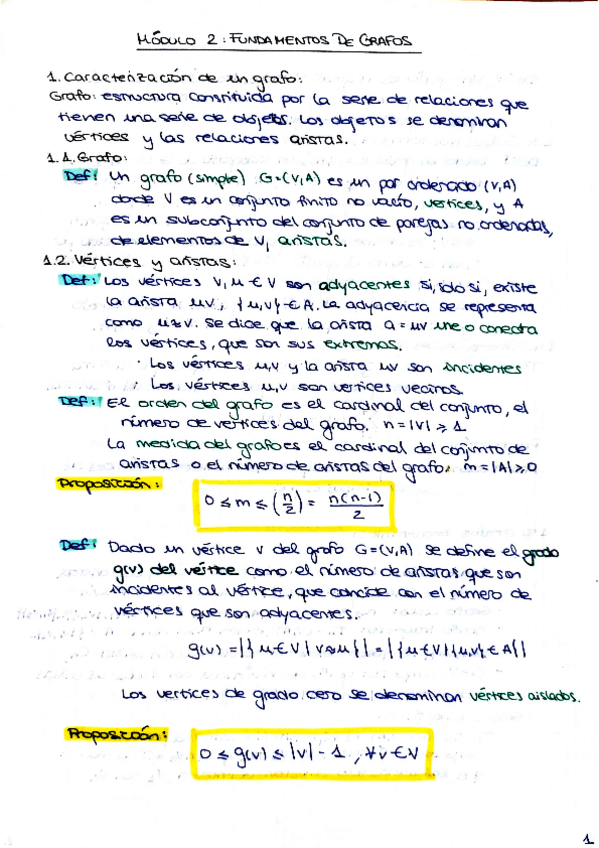 MÓDULO 2: FUNDAMENTOS DE GRAFOS
1. Caracterización de un grafo:
Grafo: estructura constituida por la serie de relaciones que
tienen una serie de objetos. Los objetos se denominan
vértices y las relaciones aristas.
1.1. Grafo:
Def: Un grafo (simple) G=(V,A) es un par ordenado (V,A)
donde V es un conjunto finito no vacío, vertices, y A
es un subconjunto del conjunto de parejas no ordenadas,
de elementos de V, aristas.
1.2. Vértices y aristas:
Def: Los vértices V, u ∈ V son adyacentes si, solo si, existe
la arista uv, {u,v} ∈ A. La adyacencia se representa
como u≈v. Se dice que la arista a = uv une o conecta
los vértices, que son sus extremos.
· Los vértices u,v y la arista uv son incidentes
· Los vértices u,v son vertices vecinos.
Def: El orden del grafo es el cardinal del conjunto, el
número de vértices del grafo. n = |V| ≥ 1
La medida del grafo es el cardinal del conjunto de
aristas o el número de aristas del grafo. m = |A| ≥ 0
Proposición:
0 ≤ m ≤ (n/2) = n(n-1)/2
Def: Dado un vértice v del grafo G=(V,A) se define el grado
g(v) del vértice como el número de aristas que son
incidentes al vértice, que concide con el número de
vértices que son adyacentes.
g(v) = |{u ∈ V | v≈u}| = |{u ∈ V | {u,v} ∈ A}|
Los vertices de grado cero se denominan vértices aislados.
Proposición:
0 ≤ g(v) ≤ |V| - 1, ∀v ∈ V
1